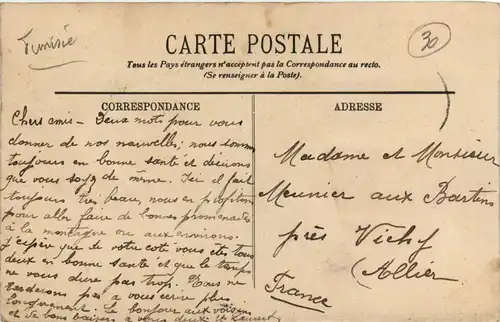 Tunisie
30
CARTE POSTALE
Tous les Pays étrangers n'acceptent pas la Correspondance au recto.
(Se renseigner à la Poste).
CORRESPONDANCE
Chers amis - Deux mots pour vous
donner de nos nouvelles; nous sommes
toujours en bonne santé et désirons
que vous soyz de même. Ici il fait
toujours très beau, nous en profitons
pour aller faire de bonnes promenades
à la montagne ou aux environs.
J'espère que de votre coté vous êtes tous
deux en bonne santé et que le temps
ne vous dure pas trop. Nous ne
tarderons pas à vous ecrire plus
longuement. Le bonjour aux voisins
et de bons baisers à vous deux
ADRESSE
Madame et Monsieur
Meunier aux Bartins
près Vichy
(Allier)
France